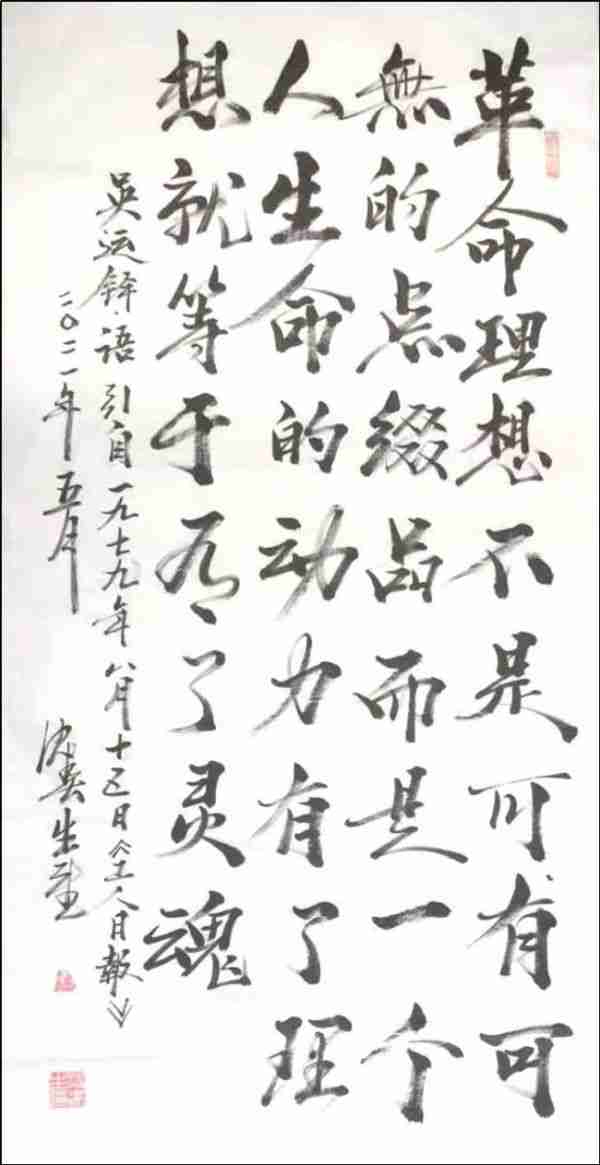 革命理想不是可有可
無的点缀品而是一个
人生命的动力有了理
想就等于有了灵魂
吴运铎·语 引自一九七九年八月十五日《工人日報》
二〇二一年五月
生